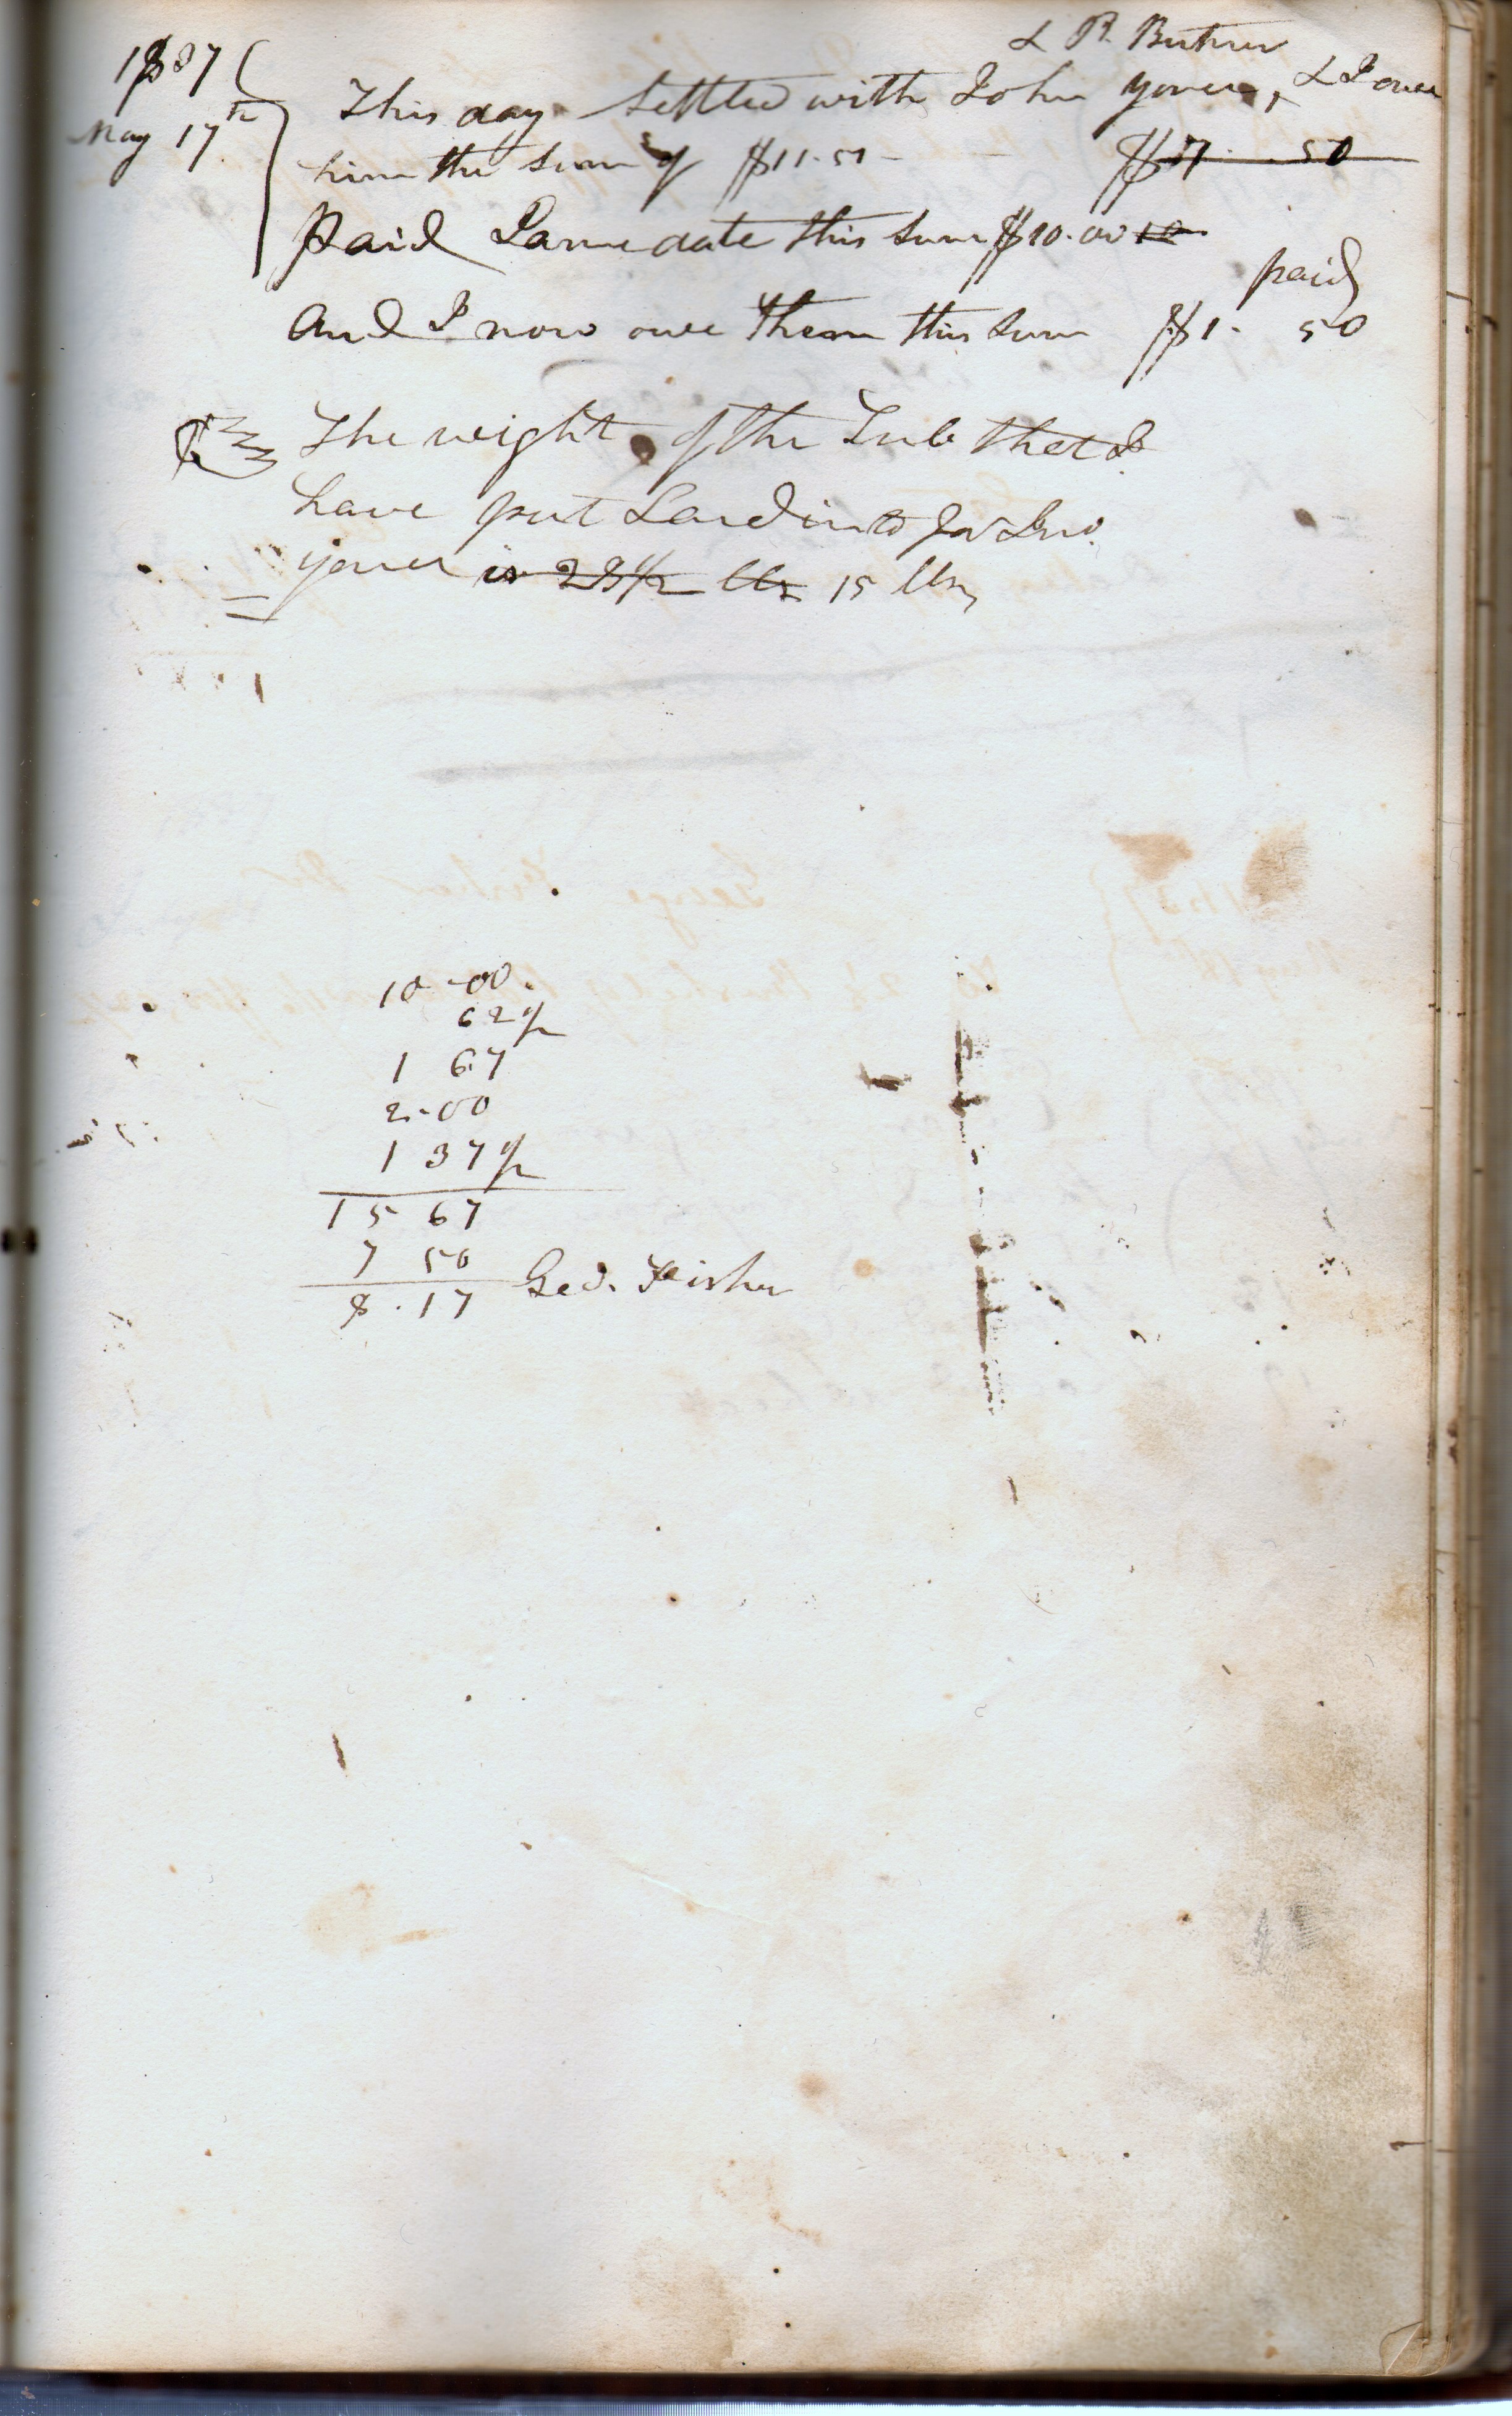 & R. Butner
1837
May 17th
This day Settled with John yoner, & I owe
him the Sum of $11.50 $7. 50
Paid Same date this Sum $10.00 10
paid
And I now owe them this Sum $1. 50
The weight of the Tub that I
have put Lard into for Jno.
yoner is 23½ lbs 15 lbs,
10-00.
62½
1 67
2.00
1 37½
15 67
7 50
8.17 Geo. Fisher